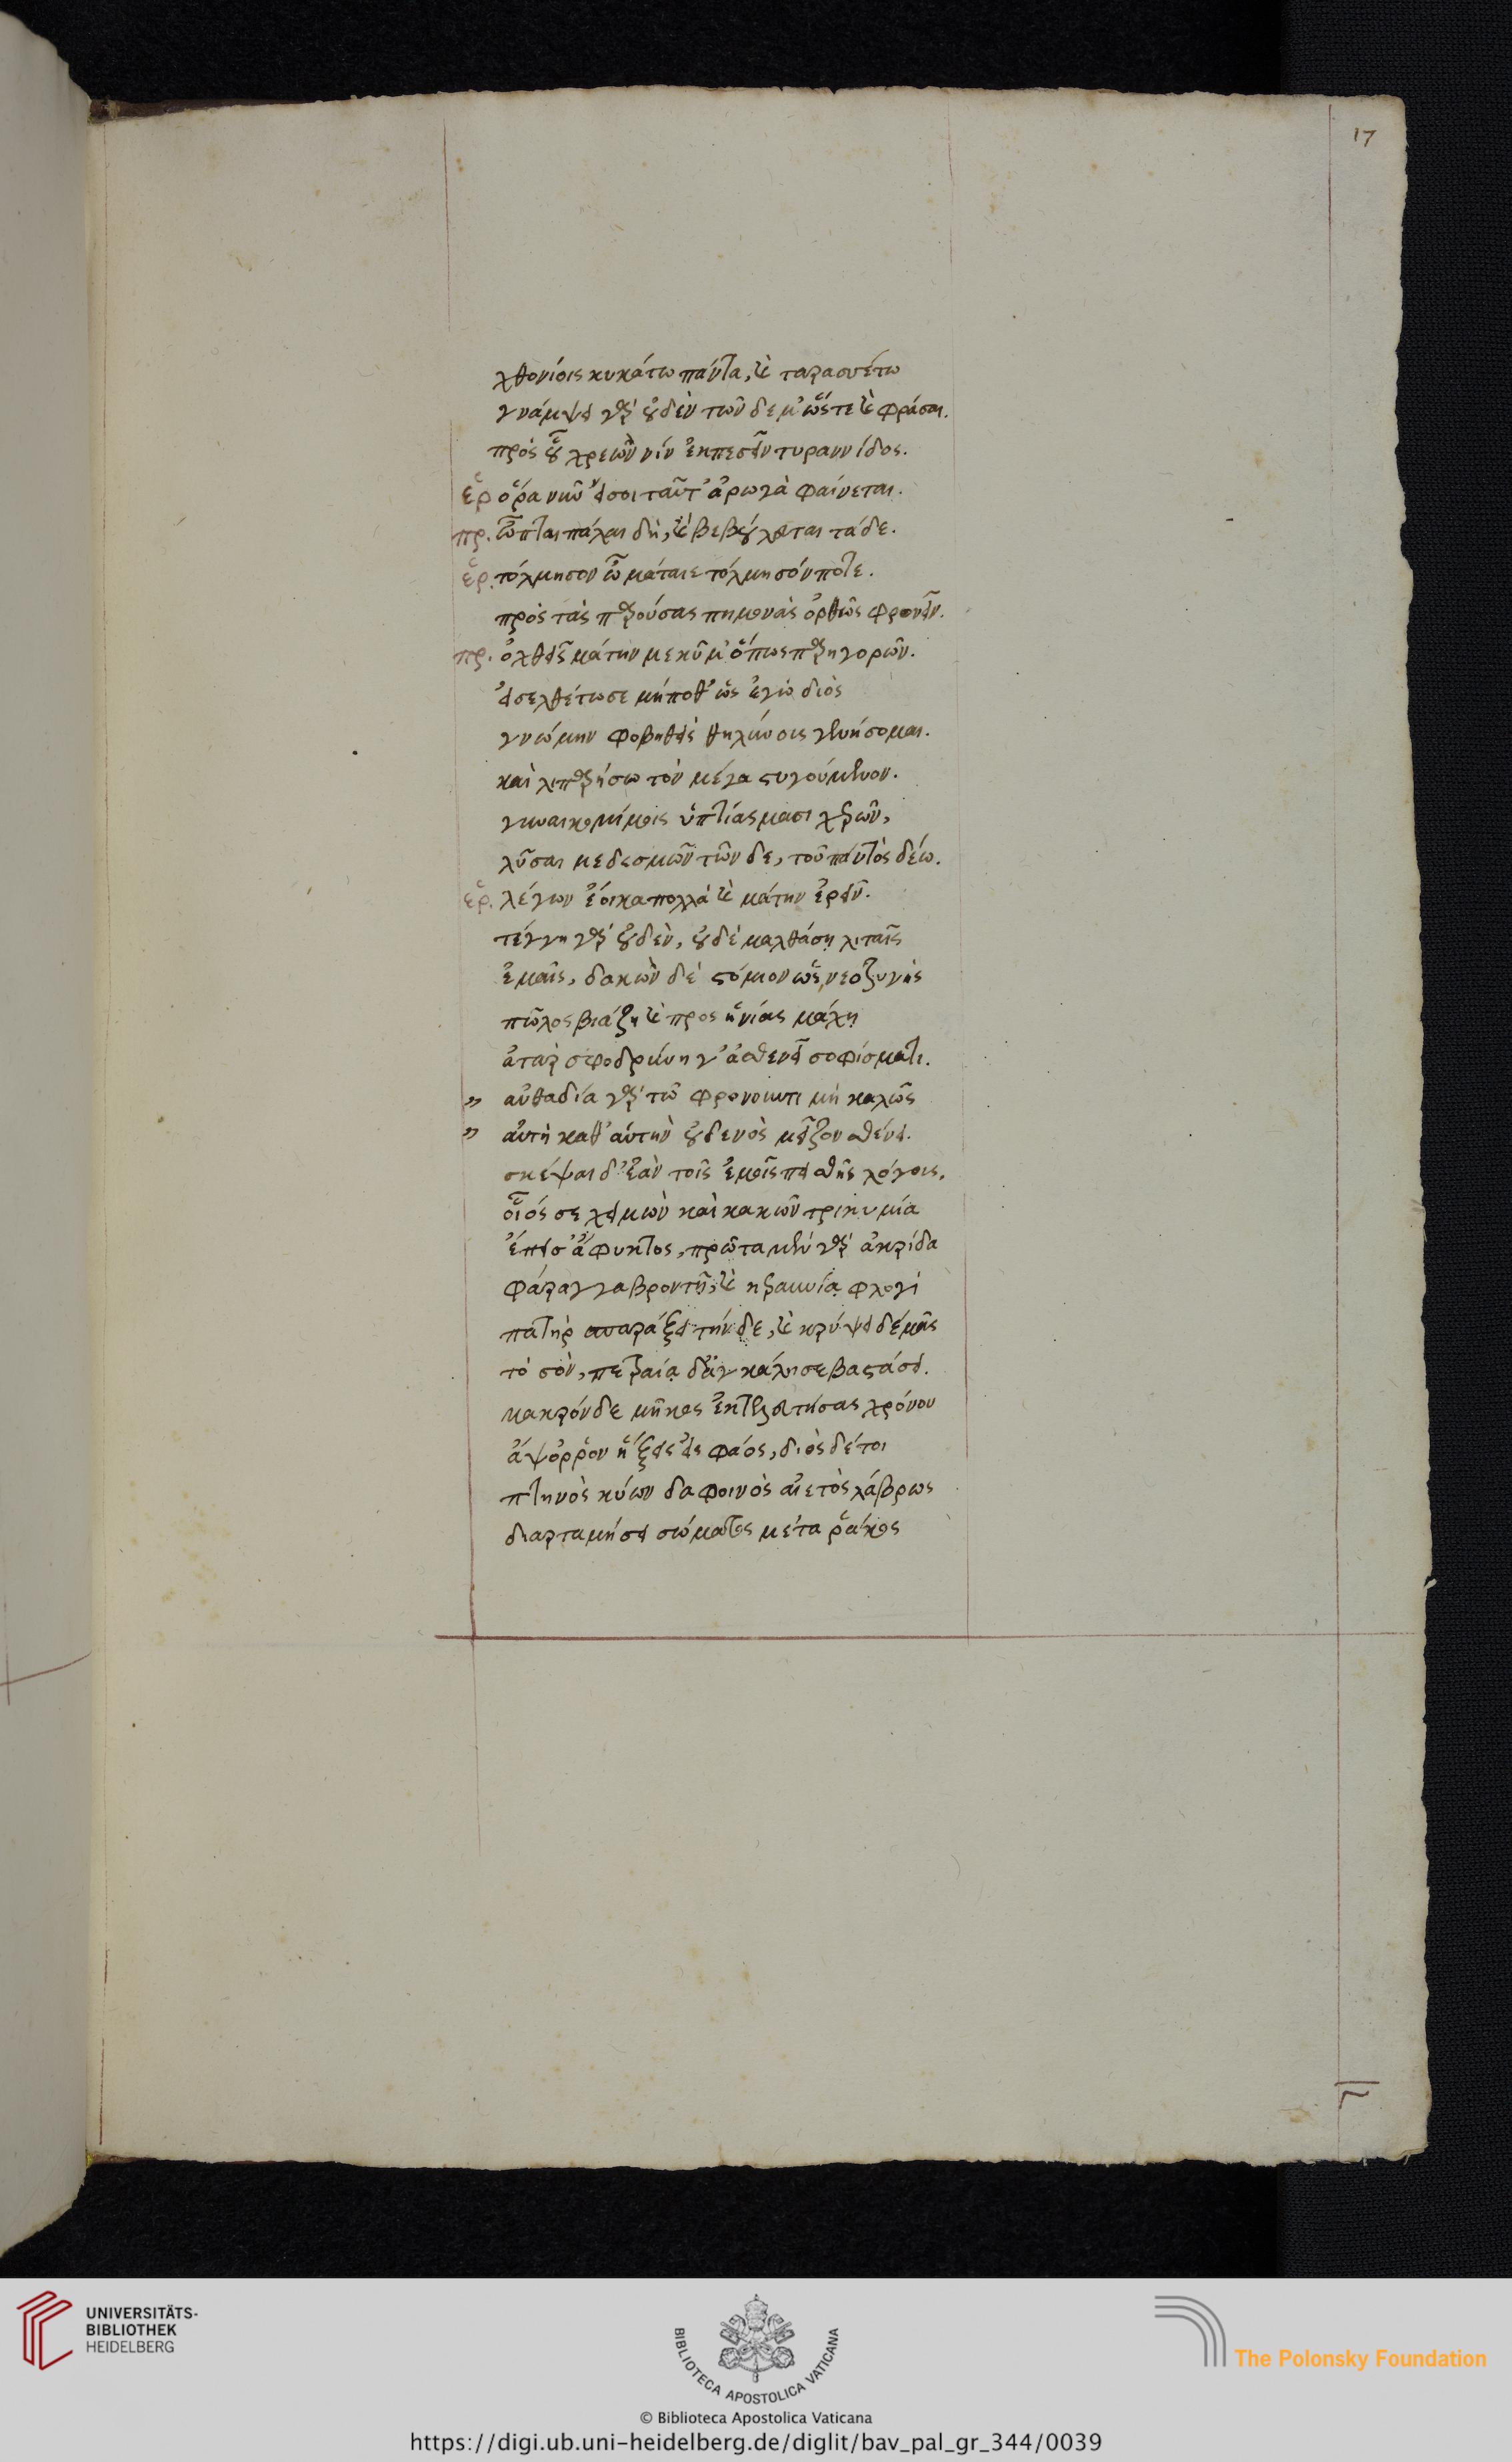 17
χθονίοις κυκάτω πάντα, καὶ ταρασσέτω
γνάμψει γὰρ οὐδὲν τῶν δε μ' ὥστε καὶ φράσαι.
πρὸς οὗ χρεὼν νιν ἐκπεσεῖν τυραννίδος.
ἑρ ὅρα νῦν εἴ σοι ταῦτ' ἀρωγὰ φαίνεται.
πρ. ὦπται πάλαι δὴ, καὶ βεβούλευται τάδε.
ἑρ. τόλμησον ὦ μάταιε τόλμησόν ποτε.
πρὸς τὰς παρούσας πημονὰς ὀρθῶς φρονεῖν.
πρ. ὀχλεῖς μάτην με κῦμ' ὅπως παρηγορῶν.
εἰσελθέτω σε μήποθ' ὡς ἐγὼ διὸς
γνώμην φοβηθεὶς θηλύνους γενήσομαι.
καὶ λιπαρήσω τὸν μέγα στυγούμενον.
γυναικομίμοις ὑπτιάσμασι χερῶν,
λῦσαι με δεσμῶν τῶν δε, τοῦ παντὸς δέω.
ἑρ. λέγων ἔοικα πολλὰ καὶ μάτην ἐρεῖν.
τέγγῃ γὰρ οὐδὲν, οὐδὲ μαλθάσῃ λιταῖς
ἐμαῖς, δακὼν δὲ στόμιον ὡς νεοζυγὴς
πῶλος βιάζῃ καὶ προς ἡνίας μάχῃ
ἀτὰρ σφοδρύνῃ γ' ἀσθενεῖ σοφίσματι.
" αὐθαδία γὰρ τῶ φρονοῦντι μὴ καλῶς
" αὐτὴ καθ' αὑτὴν οὐδενὸς μεῖζον σθένει.
σκέψαι δ' ἐὰν τοῖς ἐμοῖς πεισθῇς λόγοις,
οἷός σε χειμὼν καὶ κακῶν τρικυμία
ἔπεισ' ἄφυκτος, πρῶτα μὲν γὰρ ἀκρίδα
φάραγγα βροντῇ, καὶ κεραυνίᾳ φλογὶ
πατὴρ σπαράξει τήν δε, καὶ κρύψει δέμας
τὸ σὸν, πετραία δ' ἀγκάλη σε βαστάσει.
μακρόν δε μῆκος ἐκτελευτήσας χρόνου
ἄψορρον ἥξεις εἰς φάος, διὸς δέ τοι
πτηνὸς κύων δαφοινὸς αἰετὸς λάβρως
διαρταμήσει σώματος μέγα ῥάκος
UNIVERSITÄTS-
BIBLIOTHEK
HEIDELBERG
BIBLIOTECA APOSTOLICA VATICANA
The Polonsky Foundation
© Biblioteca Apostolica Vaticana
https://digi.ub.uni-heidelberg.de/diglit/bav_pal_gr_344/0039